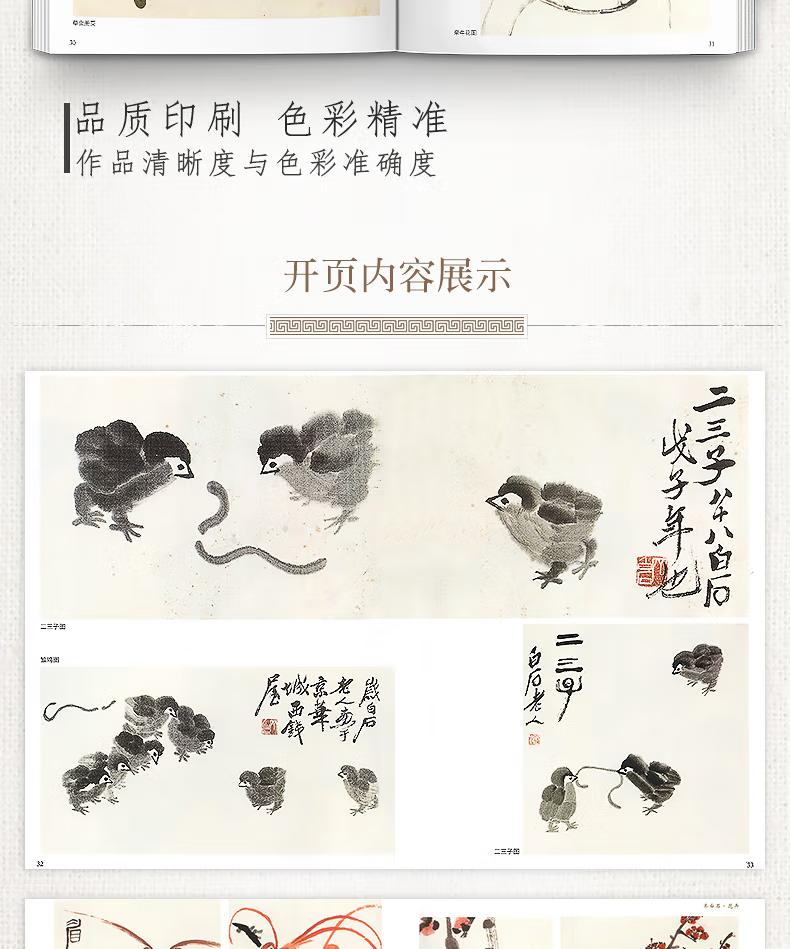 30
牵牛花图
31
品质印刷 色彩精准
作品清晰度与色彩准确度
开页内容展示
二三子八十八白石
戊子年也
二三子图
雏鸡图
岁白石
老人画于
京华
城西铁
屋
二三子
白石老人
二三子图
32
33